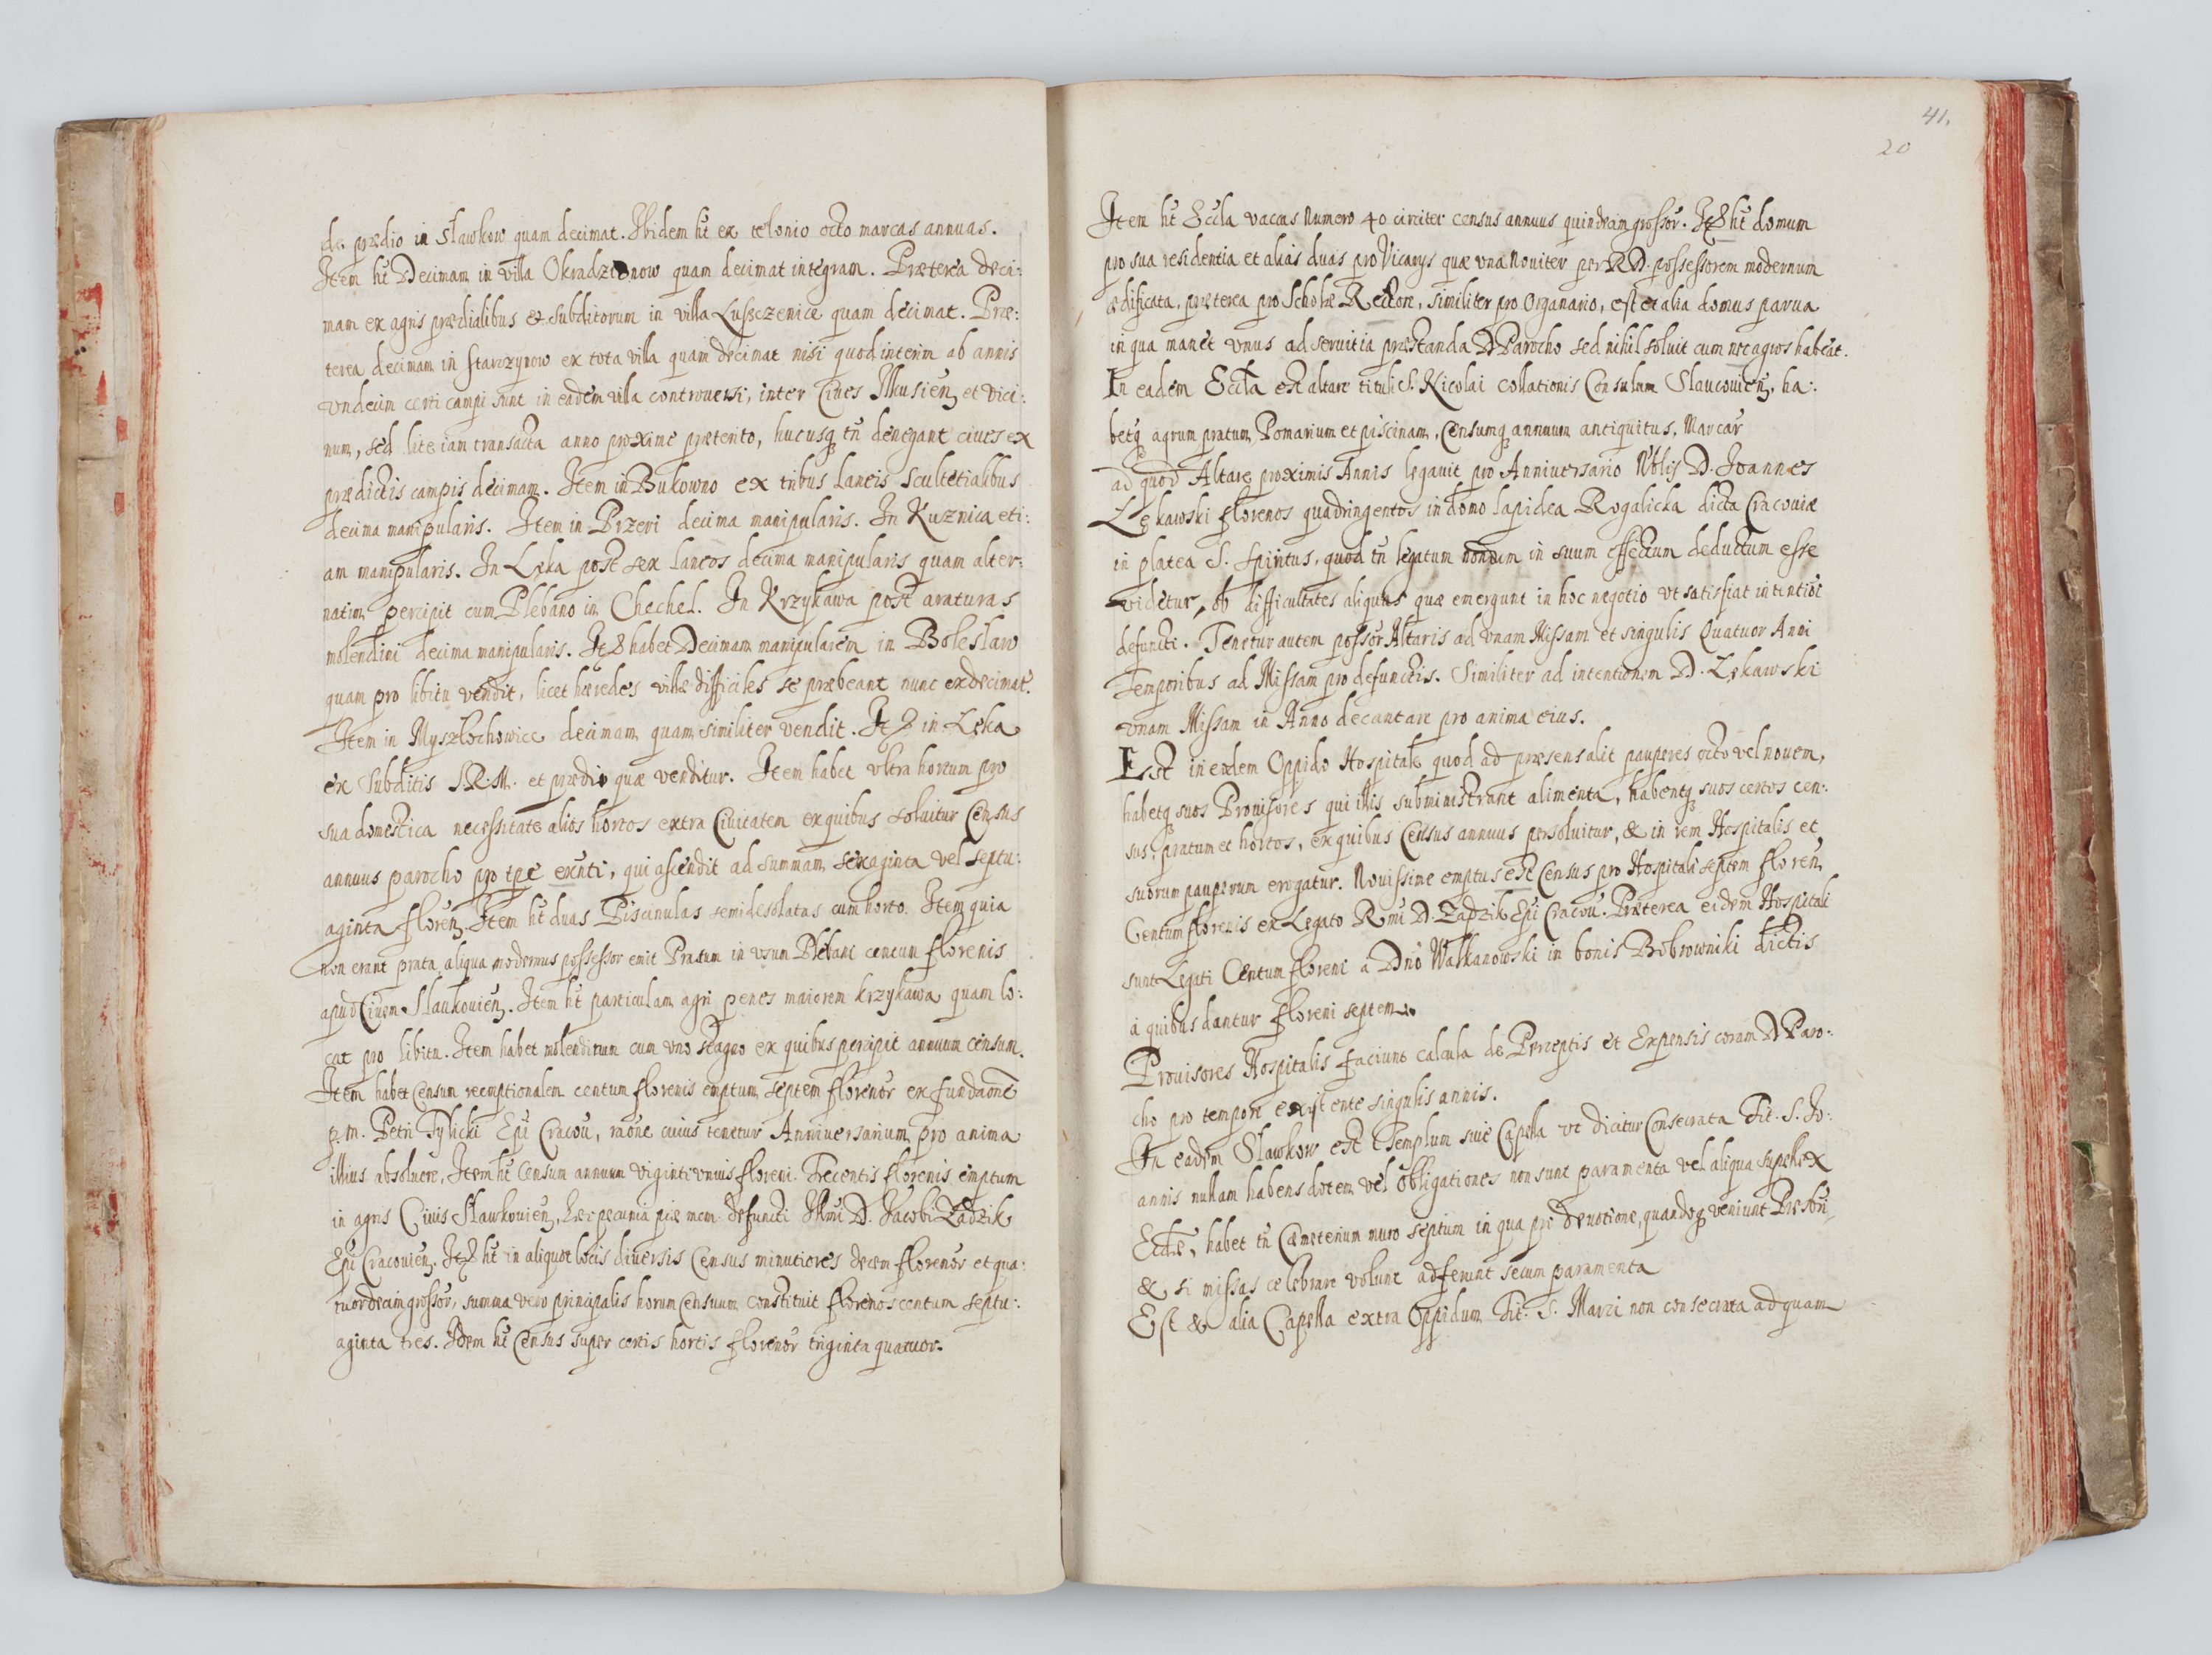 de prædio in Slawkow quam decimat. Ibidem ht̃ ex telonio octo marcas annuas.
Item ht̃ Decimam in villa Okradzionow quam decimat integram. Præterea deci:
mam ex agris prædialibus & subditorum in villa Lussczenice quam decimat. Præ:
terea decimam in Starczynow ex tota villa quam decimat nisi quod interim ab annis
vndecim certi campi sunt in eadem villa controuersi, inter Ciues Ilkusien̄ et vici:
num, sed lite iam transacta anno proxime præterito, hucusq₃ tñ denegant ciues ex
prædictis campis decimam. Item in Bukowno ex tribus laneis Scultetialibus
decima manipularis. Item in Przeri decima manipularis. In Kuznica eti:
am manipularis. In Lęka post sex laneos decima manipularis quam alter:
natim percipit cum Plebano in Chechel. In Krzykawa post araturas
molendini decima manipularis. Itē habet Decimam manipularem in Boleslaw
quam pro libitu vendit, licet hæredes villæ difficiles se præbeant nunc ex decimat̃.
Item in Myszlochowice decimam quam similiter vendit. Itē in Lęka
ex Subditis S.R.M. et prædio quæ venditur. Item habet vltra hortum pro
sua domestica necessitate alios hortos extra Ciuitatem ex quibus soluitur Census
annuus parocho pro tp̃e exñti, qui ascendit ad summam sexaginta vel septu:
aginta floren̄. Item ht̃ duas Piscinulas semidesolatas cum horto. Item quia
non erant prata aliqua modernus possessor emit Pratum in vsum Plebani centum florenis
apud Ciuem Slaukouien̄. Item ht̃ particulam agri penes maiorem krzykawa quam lo:
cat pro libitu. Item habet molendinum cum vno stagno ex quibus percipit annuum censum.
Item habet Censum reemptionalem centum florenis emptum septem florenor̃ ex fundaõne
p. m. Petri Tylicki Ep̃i Cracou, raõne cuius tenetur Anniuersarium pro anima
illius absoluere, Item ht̃ Censum annuum viginti vnius floreni. Trecentis florenis emptum
in agris Ciuis Slawkouien̄, hæc pecunia piæ mem. defuncti Illm̃i D. Jacobi Zadzik
Ep̃i Cracouien̄. Itē ht̃ in aliquot locis diuersis Census minutiores decem florenor̃ et qua:
tuordecim grossor̃, summa vero principalis horum Censuum constituit florenos centum septu:
aginta tres. Idem ht̃ Census super certis hortis florenor̃ triginta quatuor.
41.
20
Item ht̃ Eccla vaccas numero 40 circiter census annuus quindecim grossor̃. Itē ht̃ domum
pro sua residentia et alias duas pro Vicarys quæ vna nouiter per R D. possessorem modernum
ædificata, præterea pro Scholæ Rectore, similiter pro Organario, est et alia domus parua
in qua manet vnus ad seruitia præstanda D Parocho sed nihil soluit cum nec agros habeat.
In eadem Eccla est altare tituli S. Nicolai collationis Consulum Slaucouien̄, ha:
betq₃ agrum pratum Pomarium et piscinam, Censumq₃ annuum antiquitus, Marcar̃
ad quod Altare proximis Annis legauit pro Anniuersario Nb̃lis D. Joannes
Lękawski florenos quadringentos in domo lapidea Rogalicka dicta Cracouiæ
in platea S. Spiritus, quod tñ legatum nondum in suum effectum deductum esse
videtur, ob difficultates aliquas quæ emergunt in hoc negotio vt satisfiat intentioĩ
defuncti. Tenetur autem possor̃ Altaris ad vnam Missam et singulis Quatuor Anni
Temporibus ad Missam pro defunctis. Similiter ad intentionem D. Lękawski
vnam Missam in Anno decantare pro anima eius.
Est in eodem Oppido Hospitale quod ad præsens alit pauperes octo vel nouem,
habetq₃ suos Prouisores qui illis subministrant alimenta, habentq₃ suos certos cen:
sus, pratum et hortos, ex quibus Census annuus persoluitur, & in rem Hospitalis et
suorum pauperum erogatur. Nouissime emptus est Census pro Hospitali septem floren̄
Centum florenis ex Legato Rm̃i D. Zadzik Ep̃i Cracou. Præterea eidem Hospitali
sunt Legati Centum floreni a Dn̄o Walkanowski in bonis Bobrowniki dictis
à quibus dantur floreni septem.
Prouisores Hospitalis faciunt calcula de Perceptis et Expensis coram D Paro:
cho pro tempore existente singulis annis.
In eadem Slawkow est Templum siue Capella vt dicitur Consecrata Tit. S. Jo:
annis nullam habens dotem vel obligationes non sunt paramenta vel aliqua supellex
Ecclæ, habet tñ Cæmeterium muro septum in qua pro deuotione, quandoq₃ veniunt Presbr̃i
& si missas celebrare volunt adferunt secum paramenta
Est & alia Capella extra Oppidum Tit. S. Marci non consecrata ad quam